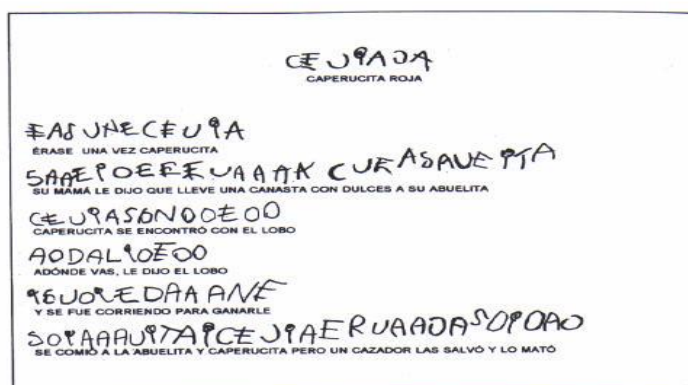 CEJIAJA
CAPERUCITA ROJA
EAS UNE CEUIA
ÉRASE UNA VEZ CAPERUCITA
SAAEIOEEEUAAAK CUEASAUEPTA
SU MAMÁ LE DIJO QUE LLEVE UNA CANASTA CON DULCES A SU ABUELITA
CEUIASBNOOEOO
CAPERUCITA SE ENCONTRÓ CON EL LOBO
AODALIOEOO
ADÓNDE VAS, LE DIJO EL LOBO
ISUOIEDAAANE
Y SE FUE CORRIENDO PARA GANARLE
SOIAAAUITAICEJIAERUAAOASOIOAO
SE COMIÓ A LA ABUELITA Y CAPERUCITA PERO UN CAZADOR LAS SALVÓ Y LO MATÓ